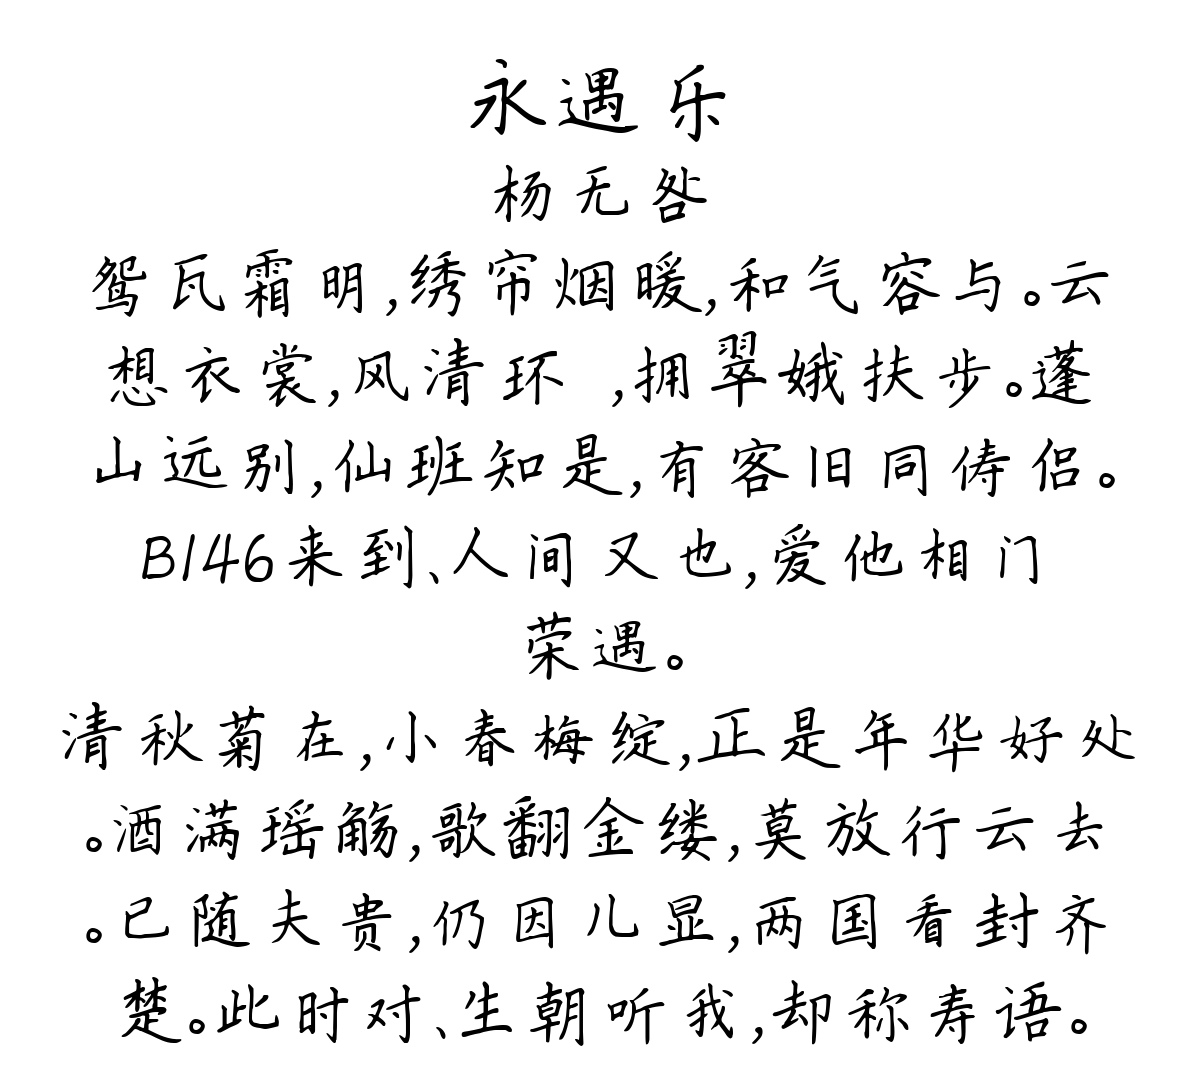 永遇乐
杨无咎
鸳瓦霜明,绣帘烟暖,和气容与。云
想衣裳,风清环 ,拥翠娥扶步。蓬
山远别,仙班知是,有客旧同俦侣。
B146来到、人间又也,爱他相门
荣遇。
清秋菊在,小春梅绽,正是年华好处
。酒满瑶觞,歌翻金缕,莫放行云去
。已随夫贵,仍因儿显,两国看封齐
楚。此时对、生朝听我,却称寿语。